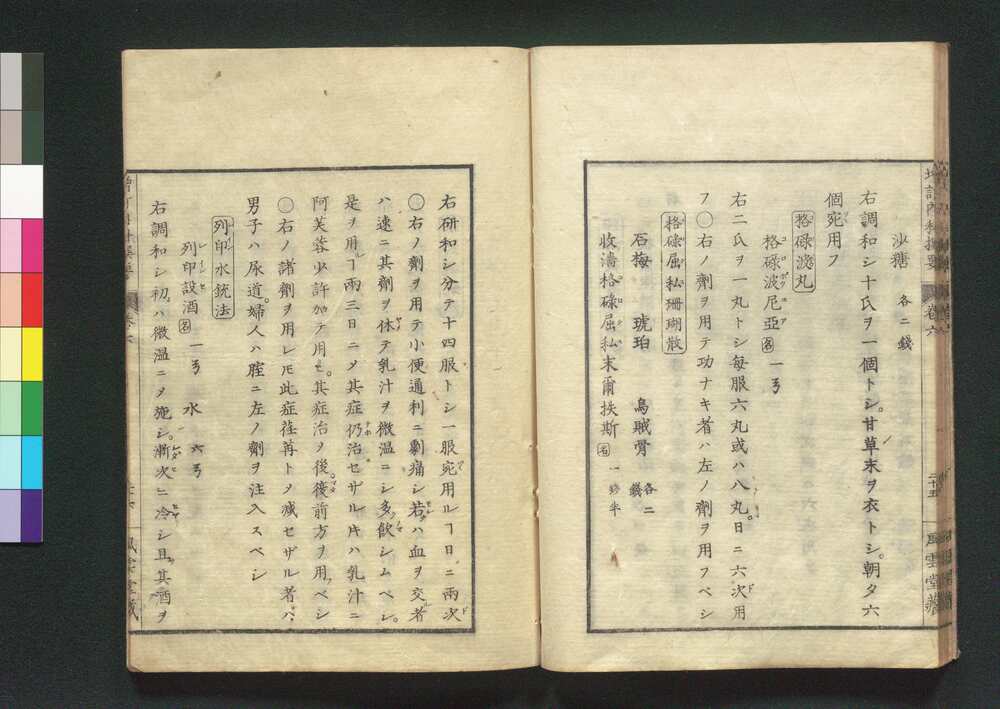 沙糖 各二錢
右調和シ十氏ヲ一個トシ。甘草末ヲ衣トシ。朝夕六
個宛用フ
格碌波丸
格碌波尼亞 名 一弓
右二氏ヲ一丸トシ每服六丸或ハ八丸。日ニ六次用
フ〇右ノ劑ヲ用テ功ナキ者ハ左ノ劑ヲ用フベシ
格碌屈私珊瑚散
石梅 琥珀 烏賊骨 各二錢
收濇格碌屈私末爾扶斯 名 一 半
增訂內科撰要 卷六 二十五 風雲堂藏
右研和シ分テ十四服トシ一服宛用ルヿ日ニ兩次
〇右ノ劑ヲ用テ小便通利ニ劇痛シ若ハ血ヲ交者
ハ速ニ其劑ヲ休テ乳汁ヲ微温ニシ多飲シムベシ。
是ヲ用ヿ兩三日ニメ其症仍治セザル片ハ乳汁ニ
阿芙蓉少許加テ用ヒ。其症治ノ後。後前方ヲ用ベシ
〇右ノ諸劑ヲ用レ𪜈此症荏苒トメ減セザル者ハ、
男子ハ尿道。婦人ハ腟ニ左ノ劑ヲ注入スベシ
列印水銃法
列印設酒 名 一弓 水 六弓
右調和シ初ハ微温ニメ施シ。漸次ニ冷シ且其酒ヲ